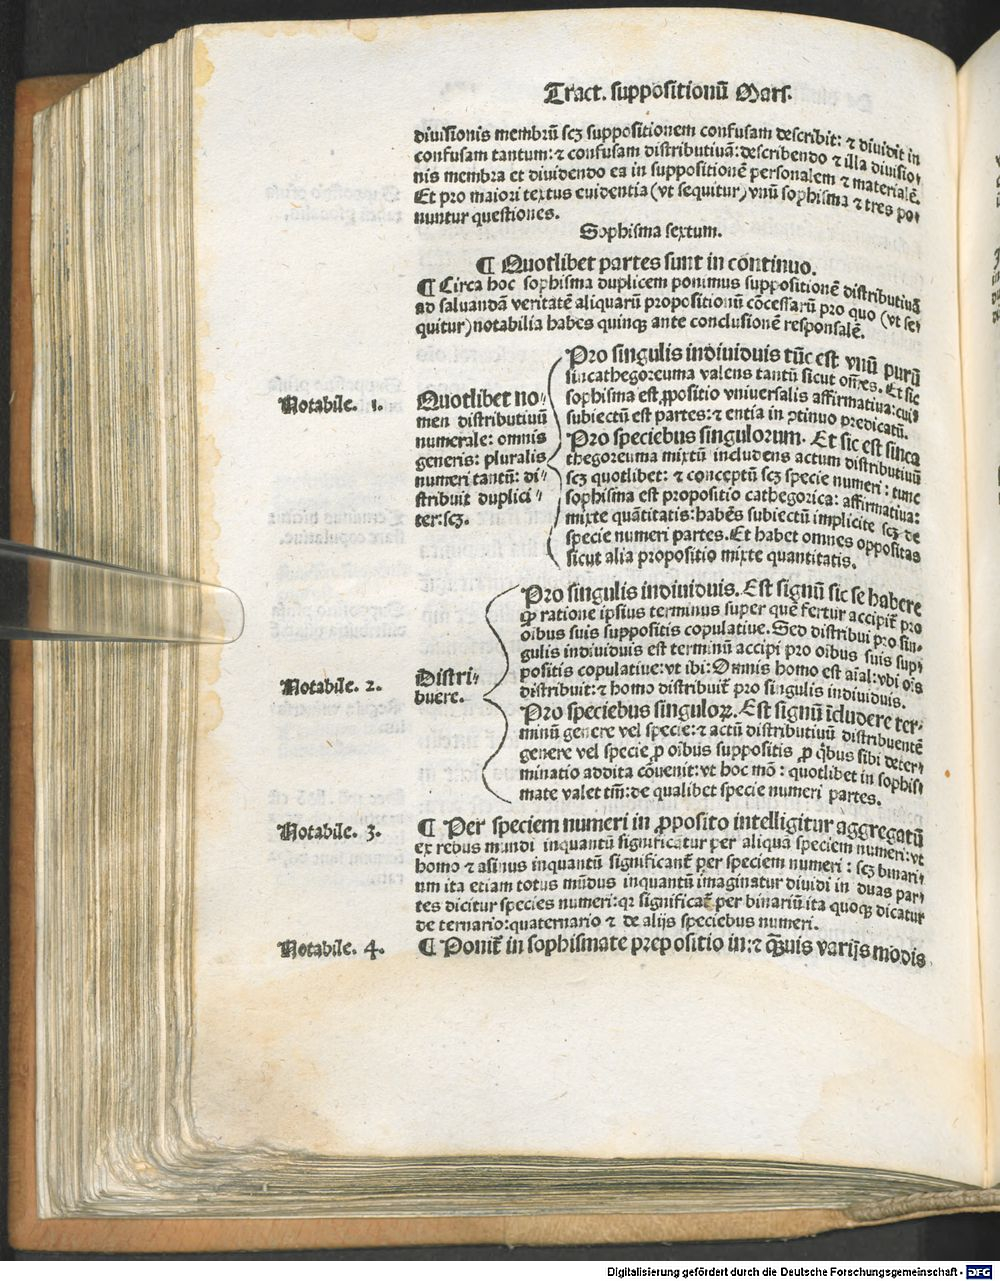 Tract. suppositionū Mars.
diuisionis membrū scꝫ suppositionem confusam describit: ⁊ diuidit in
confusam tantum: ⁊ confusam distributiuā: describendo ⁊ illa diuisio⸗
nis membra et diuidendo ea in suppositionē personalem ⁊ materialē.
Et pro maiori textus euidentia (vt sequitur) vnū sophisma ⁊ tres po⸗
nuntur questiones.
Sophisma sextum.
¶ Quotlibet partes sunt in continuo.
¶ Circa hoc sophisma duplicem ponimus suppositionē distributiuā
ad saluandā veritatē aliquarū propositionū cōcessarū pro quo (vt se⸗
quitur) notabilia habes quinqꝫ ante conclusionē responsalē.
Notabile. 1.
Quotlibet no⸗
men distributiuū
numerale: omnis
generis: pluralis
numeri tantū: di⸗
stribuit duplici⸗
ter: scꝫ.
Pro singulis indiuiduis tūc est vnū purū
sincathegoreuma valens tantū sicut oēs. Et sic
sophisma est ꝓpositio vniuersalis affirmatiua: cuiꝰ
subiectū est partes: ⁊ entia in ꝯtinuo predicatū.
Pro speciebus singulorum. Et sic est sinca
thegoreuma mixtū includens actum distributiuū
scꝫ quotlibet: ⁊ conceptū scꝫ specie numeri: tunc
sophisma est propositio cathegorica: affirmatiua:
mixte quātitatis: habēs subiectū implicite scꝫ de
specie numeri partes. Et habet omnes oppositas
sicut alia propositio mixte quantitatis.
Notabile. 2.
Distri⸗
buere.
Pro singulis indiuiduis. Est signū sic se habere
ꝙ ratione ipsius terminus super quē fertur accipit̄ pro
oībus suis suppositis copulatiue. Sed distribui pro sin⸗
gulis indiuiduis est terminū accipi pro oībus suis sup⸗
positis copulatiue: vt ibi: Omnis homo est aīal: vbi oīs
distribuit: ⁊ homo distribuit̄ pro singulis indiuiduis.
Pro speciebus singuloꝝ. Est signū īcludere ter⸗
minū genere vel specie: ⁊ actū distributiuū distribuentē
genere vel specie ꝓ oībus suppositis ꝓ ꝗ̄bus sibi deter⸗
minatio addita cōuenit: vt hoc mō: quotlibet in sophis⸗
mate valet tm̄: de qualibet specie numeri partes.
Notabile. 3.
¶ Per speciem numeri in ꝓposito intelligitur aggregatū
ex rebus mundi inquantū significatur per aliquā speciem numeri: vt
homo ⁊ asinus inquantū significant̄ per speciem numeri: scꝫ binari⸗
um ita etiam totus mūdus inquantū imaginatur diuidi in duas par⸗
tes dicitur species numeri: qꝛ significat̄ per binariū ita quoqꝫ dicatur
de ternario: quaternario ⁊ de alijs speciebus numeri.
Notabile. 4.
¶ Ponit̄ in sophismate prepositio in: ⁊ ꝙ̄uis varijs modis
Digitalisierung gefördert durch die Deutsche Forschungsgemeinschaft - DFG